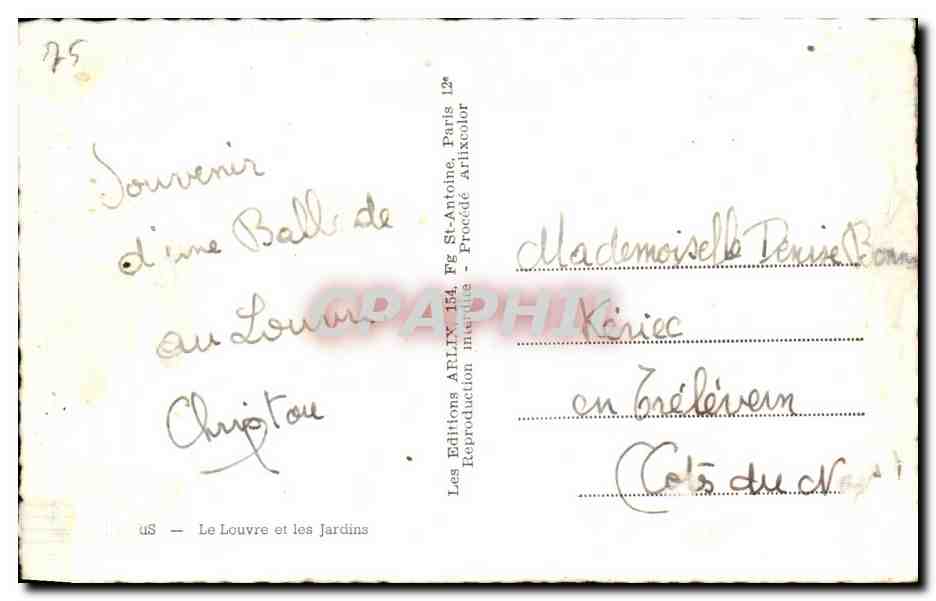 75
Souvenir
d'une Ballade
au Louvre
Christou
Les Editions ARLIX, 154, Fg St-Antoine, Paris 12e
Reproduction interdite - Procédé Arlixcolor
Mademoiselle Denise
Kériec
en Trélévern
Côts du Nord
— Le Louvre et les Jardins
CPAPHIL